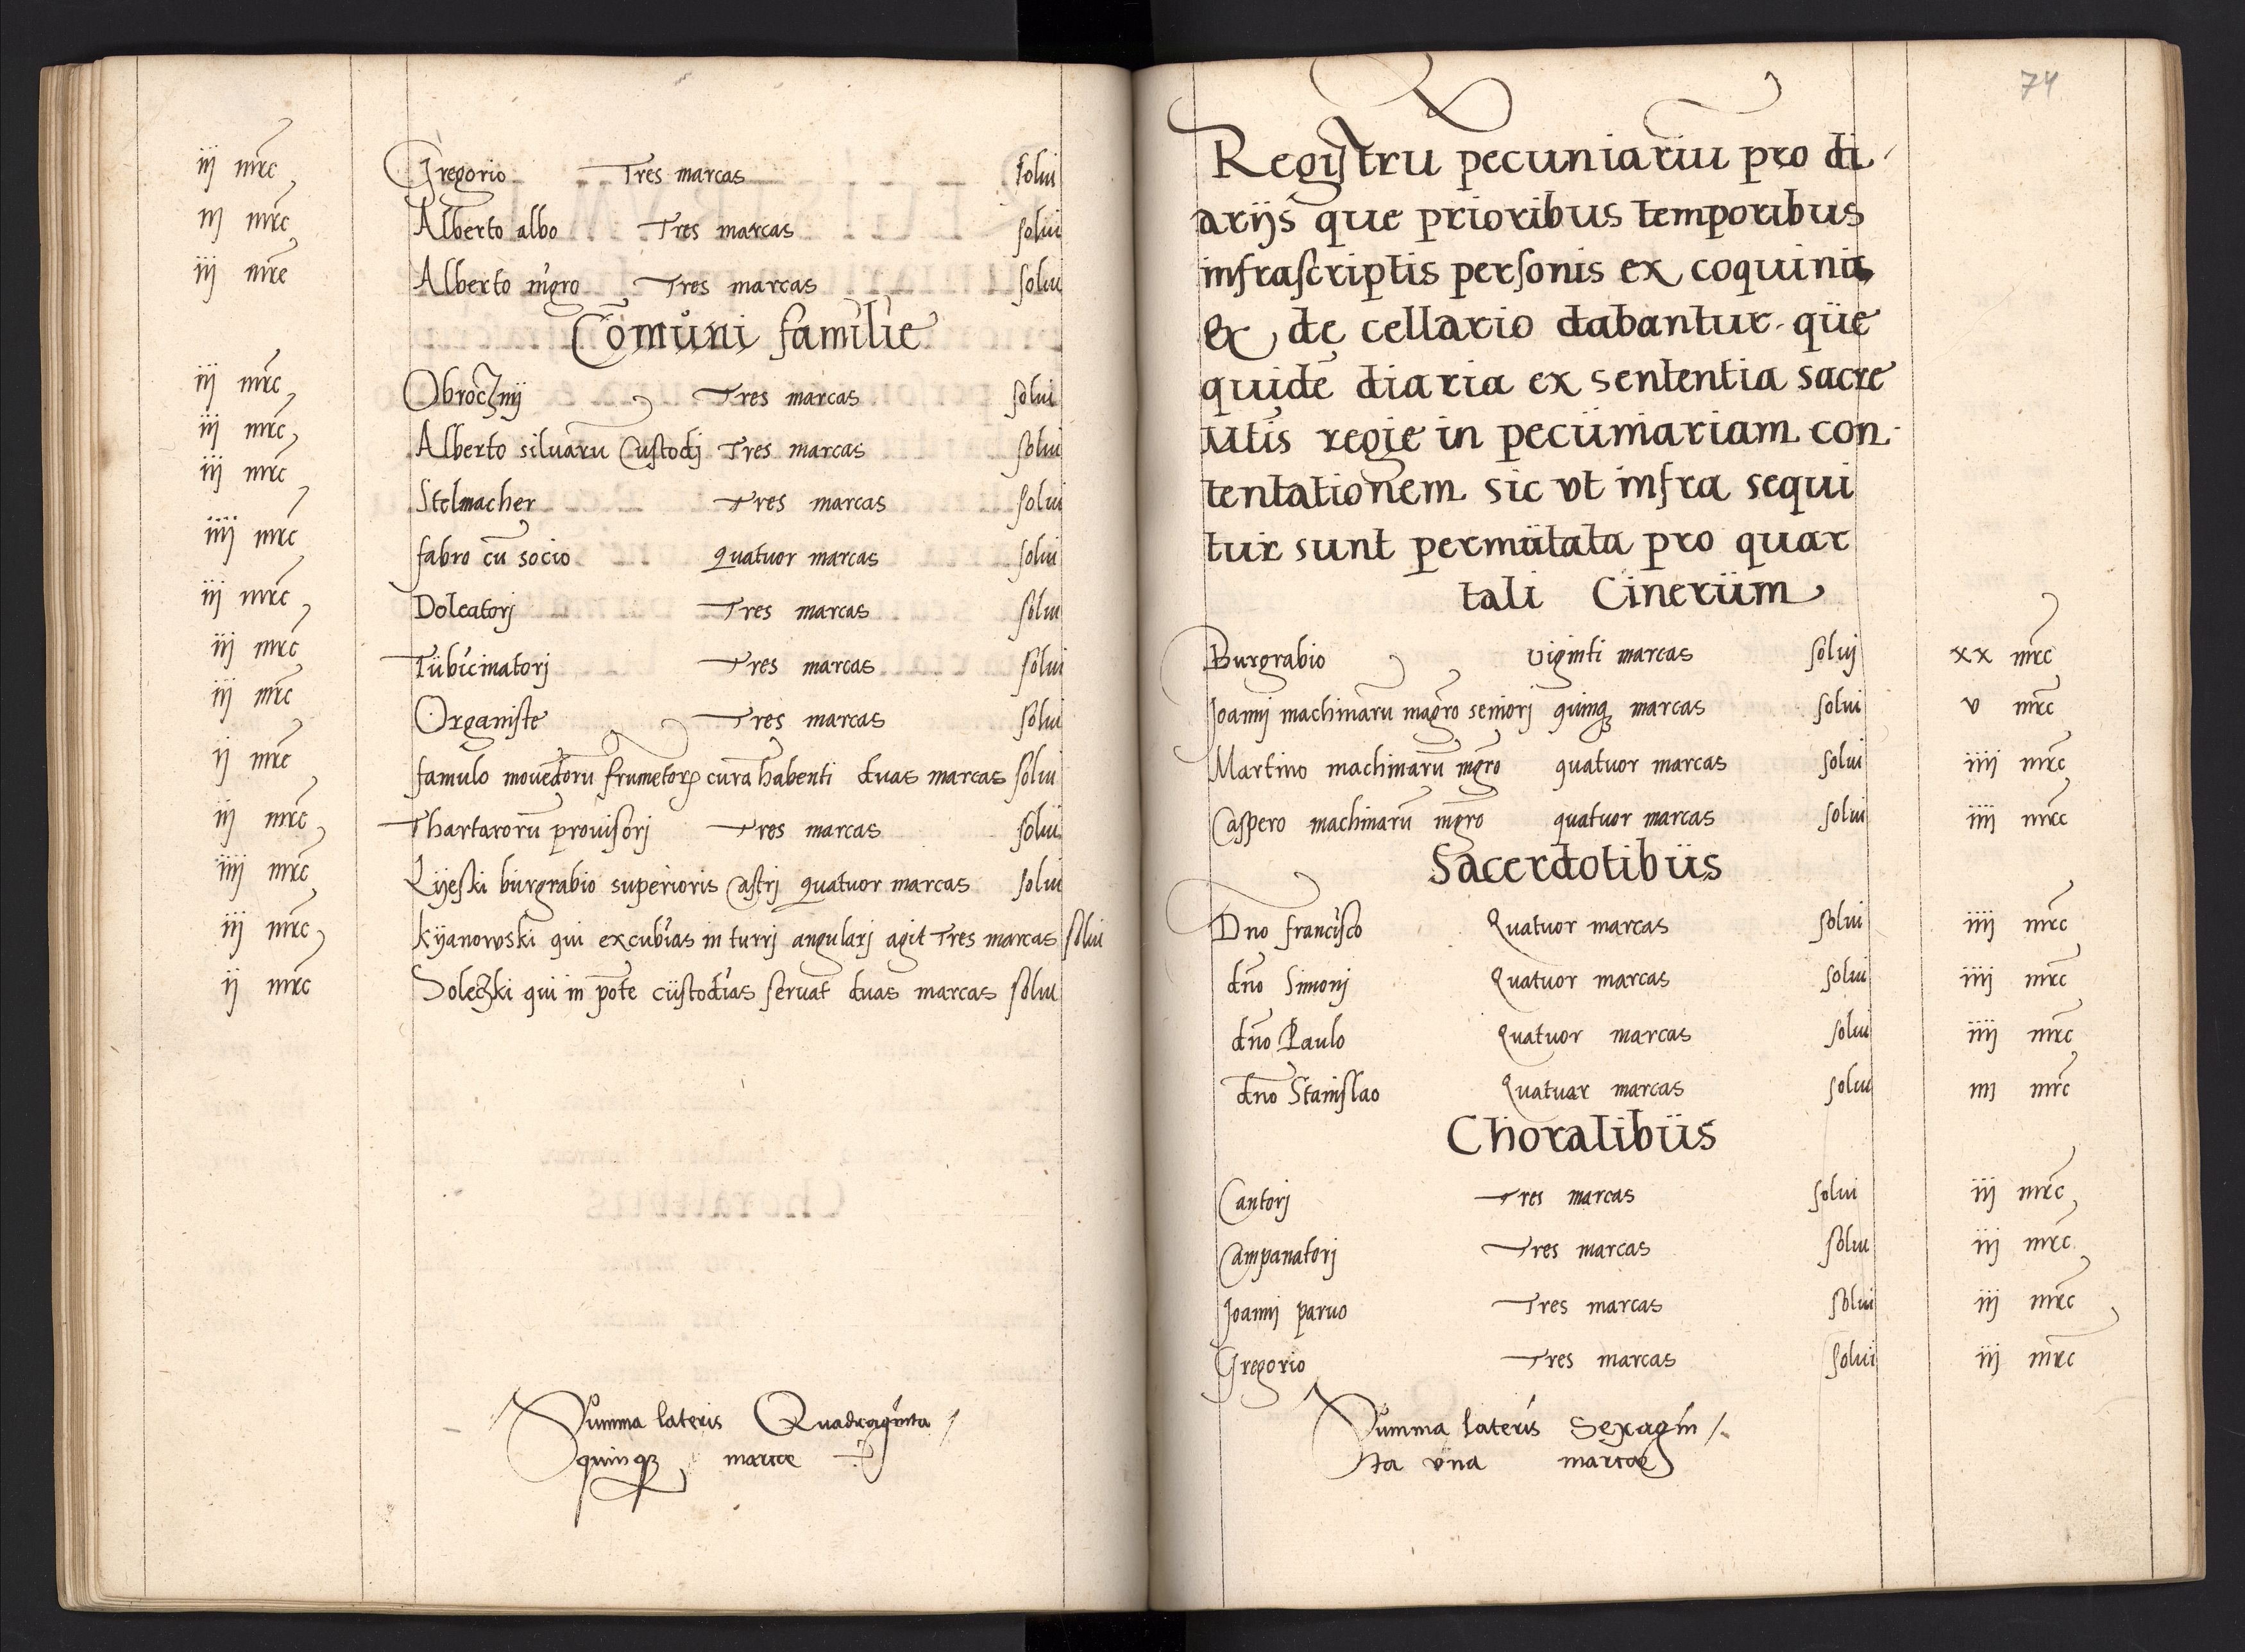 iij mrc Gregorio Tres marcas solui
iij mrc Alberto albo Tres marcas solui
iij mrc Alberto nigro Tres marcas solui
Cōmuni familie
iij mrc Obroczny Tres marcas solui
iij mrc Alberto siluarū Custodj Tres marcas solui
iij mrc Stelmacher Tres marcas solui
iiij mrc fabro cū socio quatuor marcas solui
iij mrc Doleatorj Tres marcas solui
iij mrc Tubicinatorj Tres marcas solui
iij mrc Organiste Tres marcas solui
ij mrc famulo curā habenti duas marcas solui
iij mrc Thartarorū prouisorj Tres marcas solui
iiij mrc Lyeski burgrabio superioris Castrj quatuor marcas solui
iij mrc Kyanowski qui excubias in turrj angularj agit Tres marcas solui
ij mrc Soleczki qui in pōte custodias seruat duas marcas solui
Summa lateris Quadraginta
quinq marce
74
Registrū pecuniariū pro di
arijs que prioribus temporibus
infrascriptis personis ex coquina
& de cellario dabantur que
quidē diaria ex sententia sacre
Mtis regie in pecuniariam con
tentationem sic vt infra sequi
tur sunt permutata pro quar
tali Cinerum
Burgrabio viginti marcas soluj xx mrc
Joannj machinarū mgro seniorj quinq marcas solui v mrc
Martino machinarū mgro quatuor marcas solui iiij mrc
Caspero machinarū mgro quatuor marcas solui iiij mrc
Sacerdotibus
Dno francisco Quatuor marcas solui iiij mrc
dno Simonj Quatuor marcas solui iiij mrc
dno Paulo Quatuor marcas solui iiij mrc
dno Stanislao Quatuar marcas solui iiij mrc
Choralibus
Cantorj Tres marcas solui iij mrc
Campanatorj Tres marcas solui iij mrc
Joannj paruo Tres marcas solui iij mrc
Gregorio Tres marcas solui iij mrc
Summa lateris Sexagin
ta vna marcae